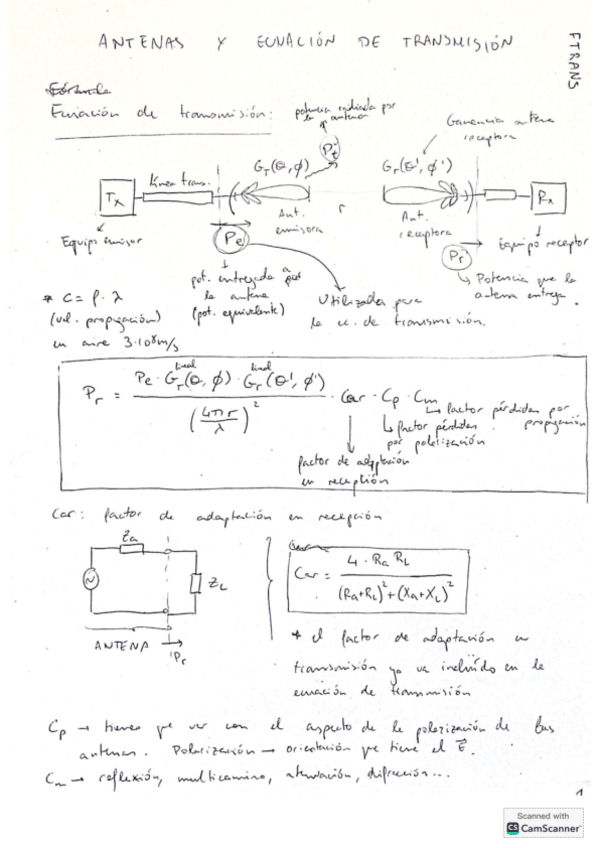 ANTENAS Y ECUACIÓN DE TRANSMISIÓN
FTRANS
Fórmula
Ecuación de transmisión:
potencia radiada por la antena
Ganancia antena receptora
Pt
Gr(θ, φ)
Gr(θ', φ')
Línea trans.
Tx
Rx
r
Ant. emisora
Ant. receptora
Equipo emisor
Pe
Pr
Equipo receptor
pot. entregada a
la antena
(pot. equivalente)
Utilizada para
la ec. de transmisión.
Potencia que la
antena entrega.
* c = f · λ
(vel. propagación)
en aire 3·10⁸ m/s
Pr = Pe · Gr(θ, φ) · Gr(θ', φ') / (4πr/λ)² · Car · Cp · Cm
lineal lineal
factor pérdidas por propagación
factor pérdidas por polarización
factor de adaptación
en recepción
Car: factor de adaptación en recepción
Za
ZL
ANTENA
Pr
Car = 4 · Ra RL / (Ra+RL)² + (Xa+XL)²
* el factor de adaptación en
transmisión ya va incluído en la
ecuación de transmisión
Cp → tienes que ver con el aspecto de la polarización de las
antenas. Polarización → orientación que tiene el E⃗.
Cm → reflexión, multicamino, atenuación, difracción...
1
Scanned with
CS CamScanner